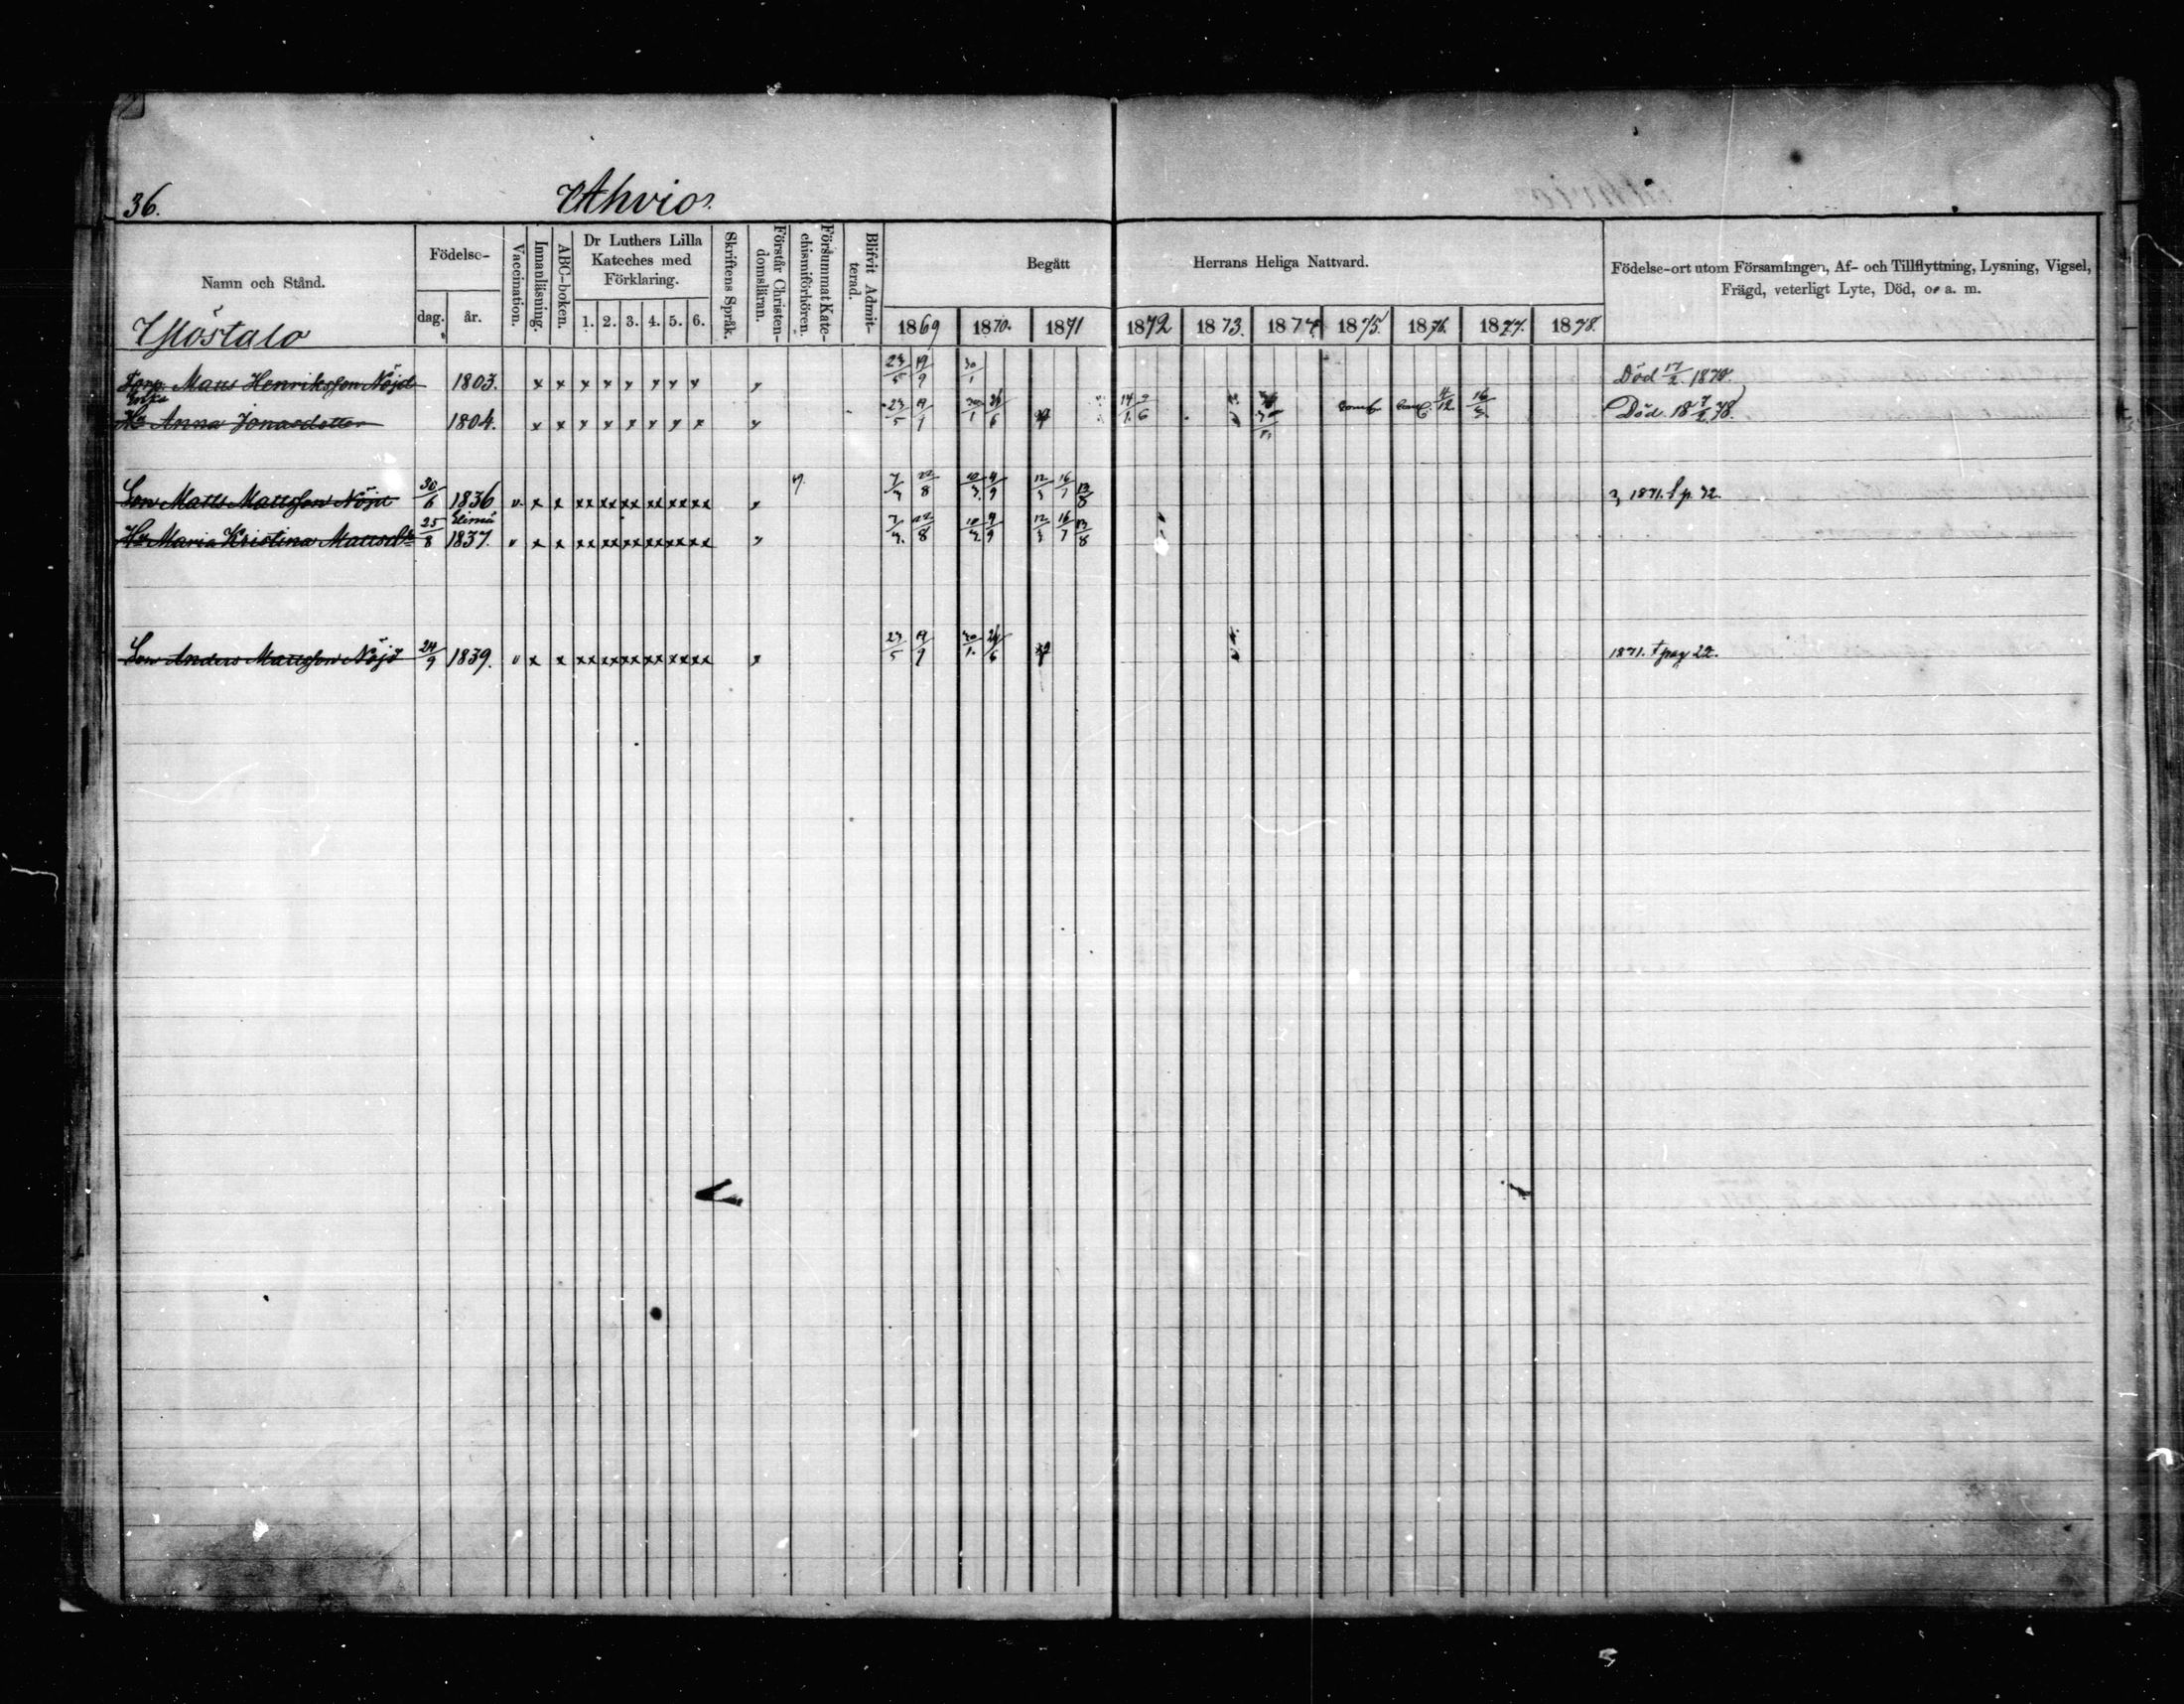 36. Ahvio.
Namn och Stånd. Födelse- dag. år. Vaccination. Innanläsning. ABC-boken. Dr Luthers Lilla Kateches med Förklaring. 1. 2. 3. 4. 5. 6. Skriftens Språk. Förstår Christen-domsläran. Försummat Kate-chismiförhören. Blifvit Admit-terad. Begått Herrans Heliga Nattvard. Födelse-ort utom Församlingen, Af- och Tillflyttning, Lysning, Vigsel, Frägd, veterligt Lyte, Död, o. a. m.
1869 1870. 1871 1872 1873. 1874 1875. 1876. 1877. 1878.
Torp. Matts Henriksson Nöjd 1803. x x x x x x x x 23/5 19/9 30/1 Död 17/2 1870.
Enka
Hu Anna Jonasdotter 1804. x x x x x x x x 23/5 19/9 30/1 24/6 Död 18 7/2 78.
Son Matts Mattsson Nöjd 30/6 1836 v x x xx xx xx xx xx xx 7/3 22/8 10/3 4/9 12/3 16/7 13/8 1871. p. 72
Elimä
Hu Maria Kristina Mattsdr 25/8 1837. v x x xx xx xx xx xx xx 7/3 22/8 10/3 4/9 12/3 16/7 13/8
Son Anders Mattsson Nöjd 24/9 1839. v x x xx xx xx xx xx xx 23/5 19/9 30/1 24/6 1871. pag 22.